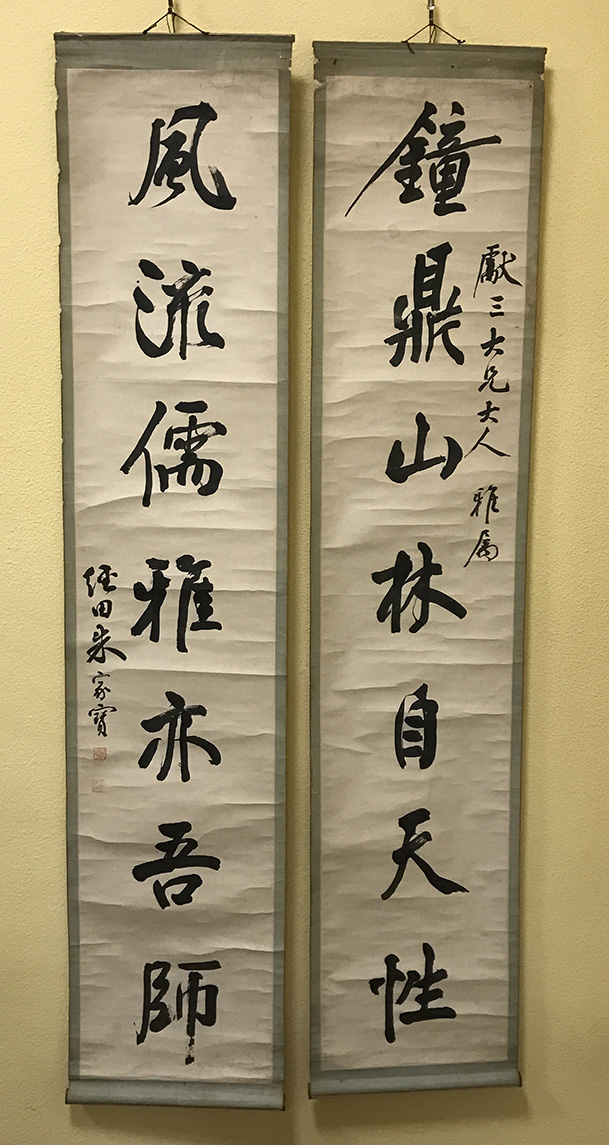 鐘鼎山林自天性
獻三大兄大人 雅屬
風流儒雅亦吾師
經田朱家寶